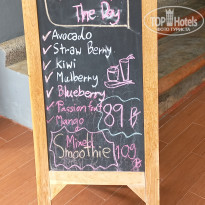 The Day
Avocado
Straw Berry
Kiwi
Mulberry
Blueberry
Passion Fruit
Mango
89 ฿
Mixed
Smoothie 109 ฿
TopHotels